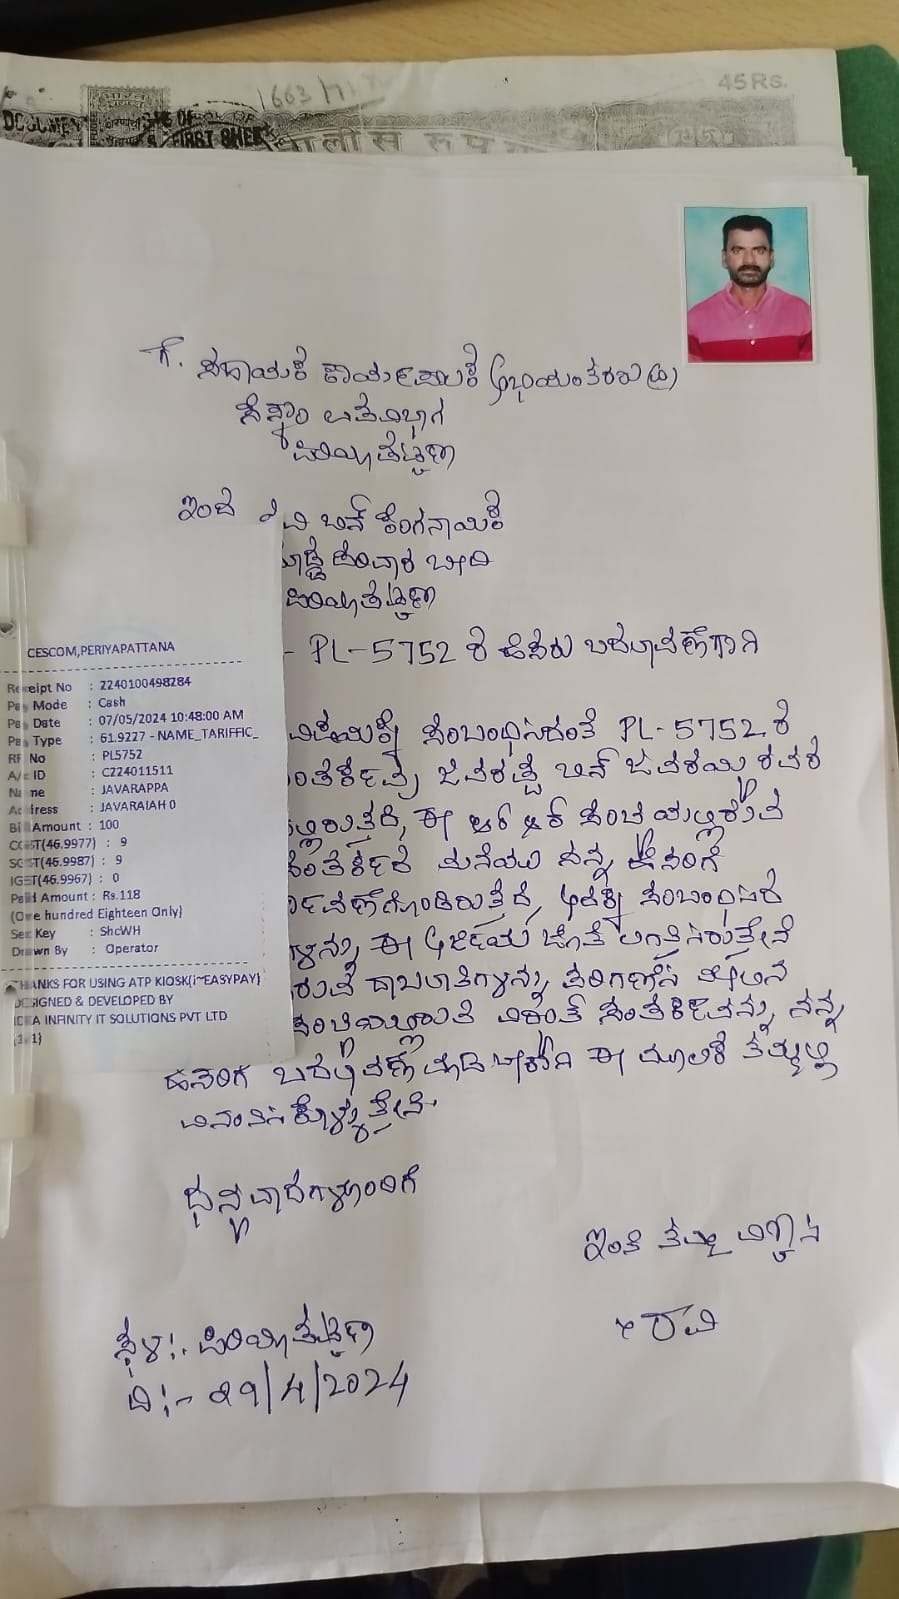 1663/71
45Rs.
भारत
DOCUMENT
FIRST SHEET
ಗೆ.
ಸಹಾಯಕ ಕಾರ್ಯಪಾಲಕ ಅಭಿಯಂತರರು (ವಿ)
ಸೆಸ್ಕಾಂ ಉಪವಿಭಾಗ
ಪಿರಿಯಾಪಟ್ಟಣ
ಇಂದ
ವಿ ಬಿನ್ ರಂಗನಾಯಕ
ಬೀದಿ
ಪಿರಿಯಾಪಟ್ಟಣ
- PL-5752 ರ ಹೆಸರು ಬದಲಾವಣೆಗಾಗಿ
ಸಂಬಂಧಿಸಿದಂತೆ PL-5752 ರ
ಜವರಪ್ಪ ಬಿನ್ ಜವರಯ್ಯ ರವರ
ಈ ಆರ್ ಆರ್ ಸಂಖ್ಯೆಯಲ್ಲಿರುವ
ಮನೆಯು ನನ್ನ ಹೆಸರಿಗೆ
ಸಂಬಂಧಿಸಿದ
ಈ ಅರ್ಜಿಯ ಜೊತೆ ಲಗತ್ತಿಸಿರುತ್ತೇನೆ
ದಾಖಲಾತಿಗಳನ್ನು ಪರಿಗಣಿಸಿ ಮೇಲಿನ
ವಿದ್ಯುತ್ ಸಂಪರ್ಕವನ್ನು ನನ್ನ
ಹೆಸರಿಗೆ ಬದಲಾವಣೆ ಮಾಡಿ ಈ ಮೂಲಕ ತಮ್ಮಲ್ಲಿ
ವಿನಂತಿಸಿಕೊಳ್ಳುತ್ತೇನೆ.
ಧನ್ಯವಾದಗಳೊಂದಿಗೆ
ಇಂತಿ ತಮ್ಮ ವಿಶ್ವಾಸಿ
x ರವಿ
ಸ್ಥಳ:. ಪಿರಿಯಾಪಟ್ಟಣ
ದಿ:- 29/4/2024
CESCOM,PERIYAPATTANA
Receipt No : 2240100498284
Pay Mode : Cash
Pay Date : 07/05/2024 10:48:00 AM
Pay Type : 61.9227 - NAME_TARIFFIC_
RR No : PL5752
A/c ID : CZ24011511
Name : JAVARAPPA
Address : JAVARAIAH 0
Bill Amount : 100
CGST(46.9977) : 9
SGST(46.9987) : 9
IGST(46.9967) : 0
Paid Amount : Rs.118
(One hundred Eighteen Only)
Sec Key : ShcWH
Drawn By : Operator
THANKS FOR USING ATP KIOSK(i~EASYPAY)
DESIGNED & DEVELOPED BY
IDEA INFINITY IT SOLUTIONS PVT LTD